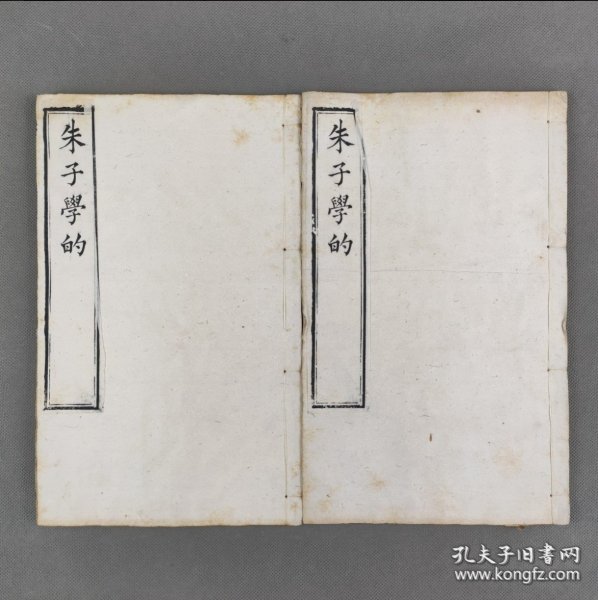 朱子學的
朱子學的
孔夫子旧書网
www.kongfz.com